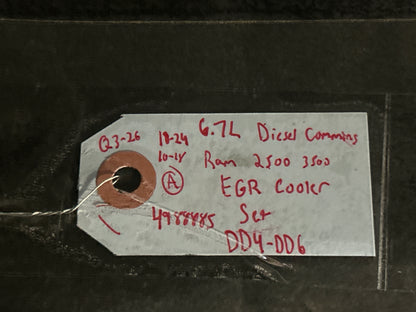 Q3-26 18-24 6.7L Diesel Cummins
10-18 Ram 2500 3500
A EGR Cooler
4988885 Set
DD4-DD6